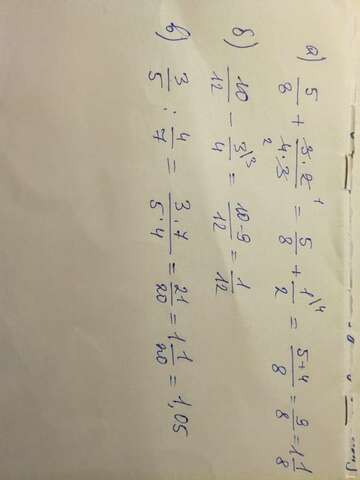 а) 5/8 + 3·2/4·3 = 5/8 + 1/2 \4 = 5+4/8 = 9/8 = 1 1/8
б) 10/12 - 3/4 \3 = 10-9/12 = 1/12
в) 3/5 : 4/7 = 3·7/5·4 = 21/20 = 1 1/20 = 1,05